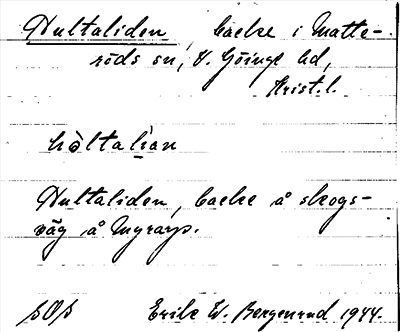 Hultaliden, backe i Matte-
röds sn, V. Göinge hd,
Krist. l.
hòltalìan
Hultaliden, backe å skogs-
väg å Myrarp.
sOs Erik W. Bergenrud 1944.